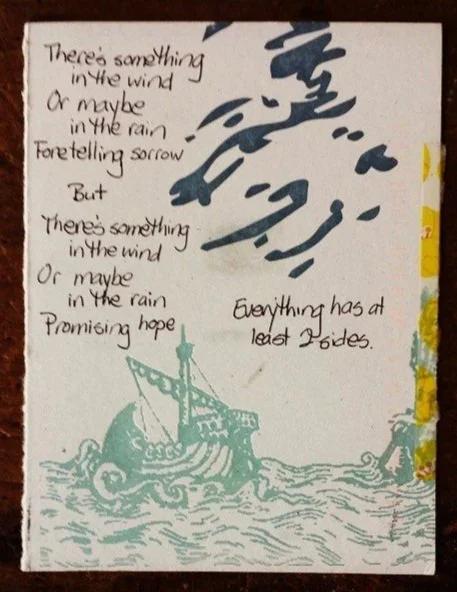 There's something
in the wind
Or maybe
in the rain
Foretelling sorrow
But
There's something
in the wind
Or maybe
in the rain
Promising hope
Everything has at
least 2 sides.